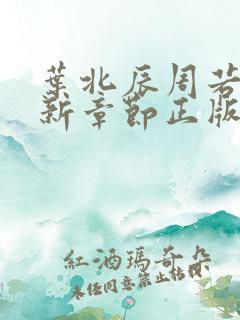 葉北辰周若
新章節正版
紅酒瑪奇朵
未經同意禁止轉載